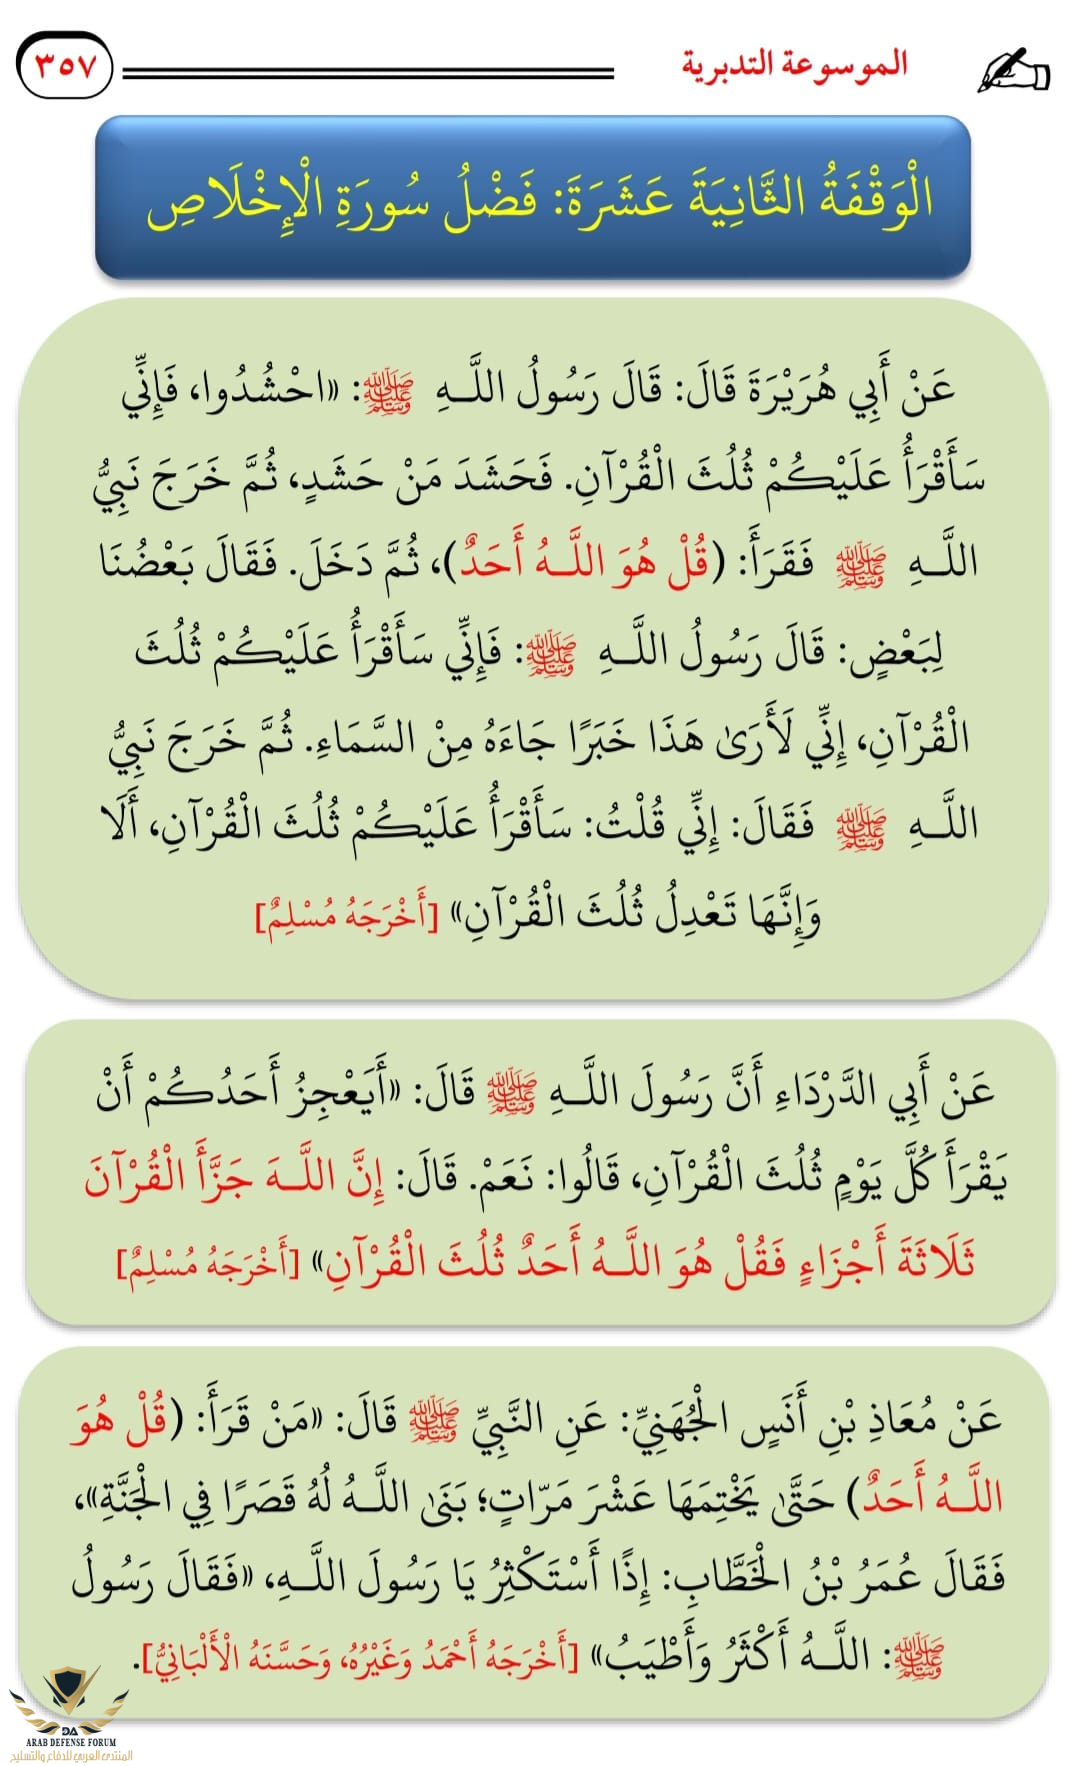 الموسوعة التدبرية
٣٥٧
الْوَقْفَةُ الثَّانِيَةَ عَشَرَةَ: فَضْلُ سُورَةِ الْإِخْلَاصِ
عَنْ أَبِي هُرَيْرَةَ قَالَ: قَالَ رَسُولُ اللَّـهِ ﷺ: «احْشُدُوا، فَإِنِّي
سَأَقْرَأُ عَلَيْكُمْ ثُلُثَ الْقُرْآنِ. فَحَشَدَ مَنْ حَشَدٍ، ثُمَّ خَرَجَ نَبِيُّ
اللَّـهِ ﷺ فَقَرَأَ: (قُلْ هُوَ اللَّـهُ أَحَدٌ)، ثُمَّ دَخَلَ. فَقَالَ بَعْضُنَا
لِبَعْضٍ: قَالَ رَسُولُ اللَّـهِ ﷺ: فَإِنِّي سَأَقْرَأُ عَلَيْكُمْ ثُلُثَ
الْقُرْآنِ، إِنِّي لَأَرَىٰ هَذَا خَبَرًا جَاءَهُ مِنْ السَّمَاءِ. ثُمَّ خَرَجَ نَبِيُّ
اللَّـهِ ﷺ فَقَالَ: إِنِّي قُلْتُ: سَأَقْرَأُ عَلَيْكُمْ ثُلُثَ الْقُرْآنِ، أَلَا
وَإِنَّهَا تَعْدِلُ ثُلُثَ الْقُرْآنِ» [أَخْرَجَهُ مُسْلِمٌ]
عَنْ أَبِي الدَّرْدَاءِ أَنَّ رَسُولَ اللَّـهِ ﷺ قَالَ: «أَيَعْجِزُ أَحَدُكُمْ أَنْ
يَقْرَأَ كُلَّ يَوْمٍ ثُلُثَ الْقُرْآنِ، قَالُوا: نَعَمْ. قَالَ: إِنَّ اللَّـهَ جَزَّأَ الْقُرْآنَ
ثَلَاثَةَ أَجْزَاءٍ فَقُلْ هُوَ اللَّـهُ أَحَدٌ ثُلُثَ الْقُرْآنِ» [أَخْرَجَهُ مُسْلِمٌ]
عَنْ مُعَاذِ بْنِ أَنَسٍ الْجُهَنِيِّ: عَنِ النَّبِيِّ ﷺ قَالَ: «مَنْ قَرَأَ: (قُلْ هُوَ
اللَّـهُ أَحَدٌ) حَتَّىٰ يَخْتِمَهَا عَشْرَ مَرّاتٍ؛ بَنَىٰ اللَّـهُ لُه قَصَرًا فِي الْجَنَّةِ»،
فَقَالَ عُمَرُ بْنُ الْخَطَّابِ: إِذًا أَسْتَكْثِرُ يَا رَسُولَ اللَّـهِ، «فَقَالَ رَسُولُ
ﷺ: اللَّـهُ أَكْثَرُ وَأَطْيَبُ» [أَخْرَجَهُ أَحْمَدُ وَغَيْرُهُ، وَحَسَّنَهُ الْأَلْبَانِيُّ].
DA
ARAB DEFENSE FORUM
المنتدى العربي للدفاع والتسليح